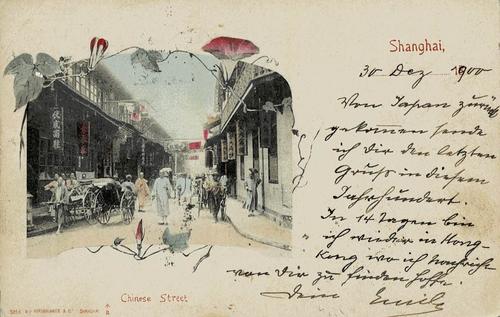 Shanghai,
30 Dez 1900
Von Japan zurück
gekommen sende
ich dir den letzten
Gruss in diesem
Jahrhundert.
In 14 Tagen bin
ich wieder in Hong-
Kong wo ich Nachricht
von Dir zu finden hoffe.
Dein Emil
Chinese Street
SHANGHAI